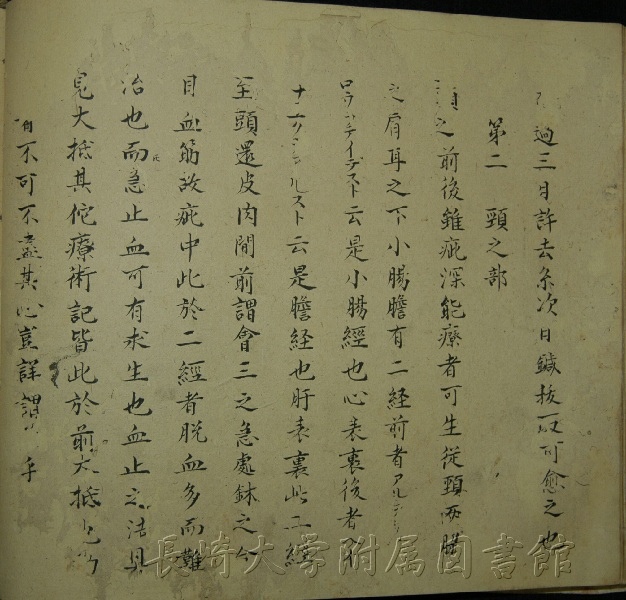 過三日許去糸次日鍼抜一 可愈之也
第二 頸之部
頸之前後雖疵深能療者可生從頸両脇
之肩耳之下小腸膽有二経前者アルテ
イテスト云是小腸經也心表裏後者
ルスト云是膽経也肝表裏此二經
至頭還皮肉間前謂會三之急處鉢之
目血筋故疵中此於二經者脱血多而難
治也而急止血可有求生也血止之法具
見大抵其佗療術記皆此於前大抵
不可不盡其心豈詳謂 乎
長崎大学附属図書館